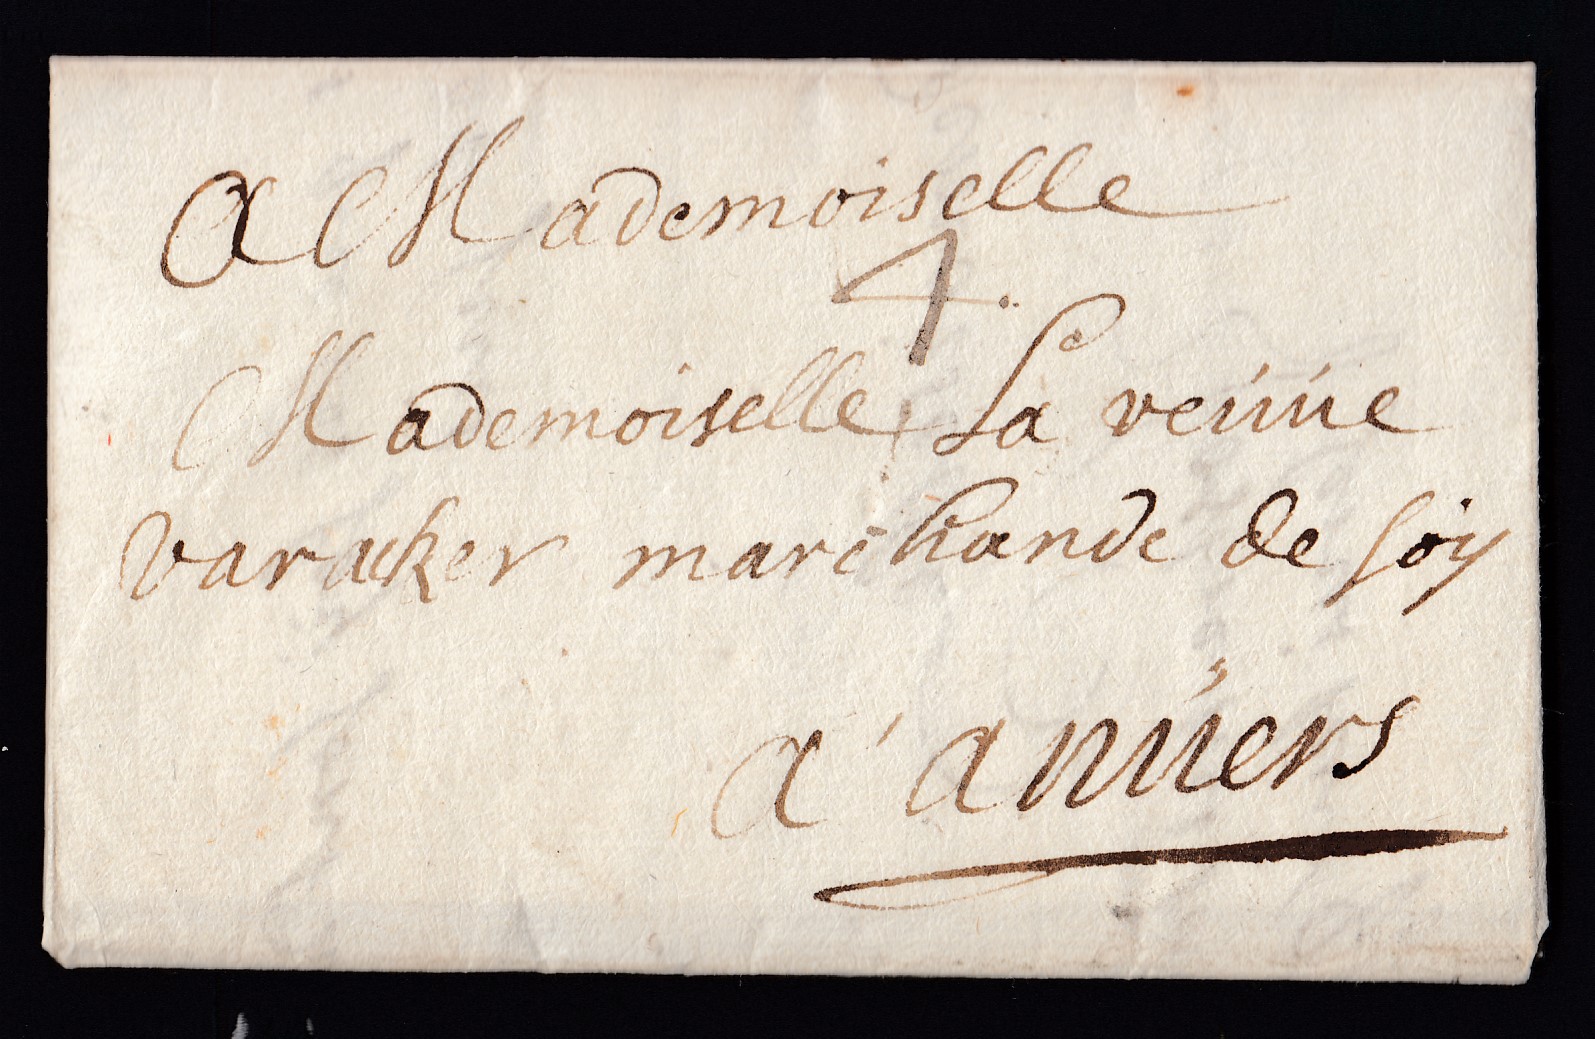 A Mademoiselle
4
Mademoiselle La veuue
varacker marchande de soy
a anuers